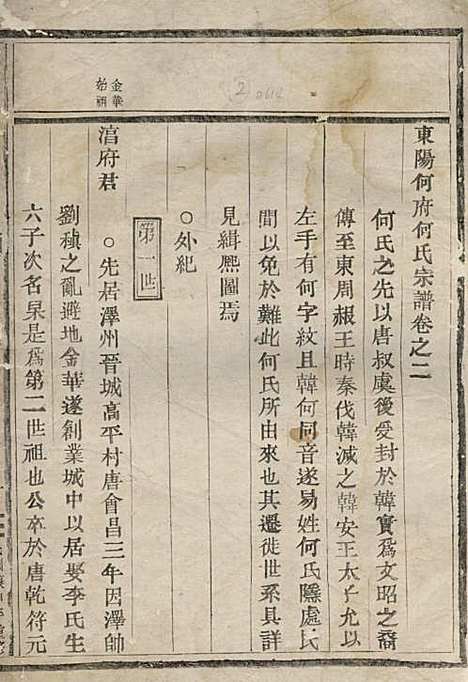 東陽何府何氏宗譜卷之二
何氏之先以唐叔處後爰封於韓實爲文昭之裔
傳至東周赧王時秦伐韓滅之韓安王太子允以
左手有何字紋且韓何同音遂易姓何氏隱處民
間以免於難此何氏所由來也其遷徙世系具詳
見緝熙圖焉
○外紀
第一世
金華
始祖
滈府君
○先居澤州晉城高平村唐會昌三年因澤帥
劉稹之亂避地金華遂創業城中以居娶李氏生
六子次名杲是爲第二世祖也公卒於唐乾符元
(2) 0612